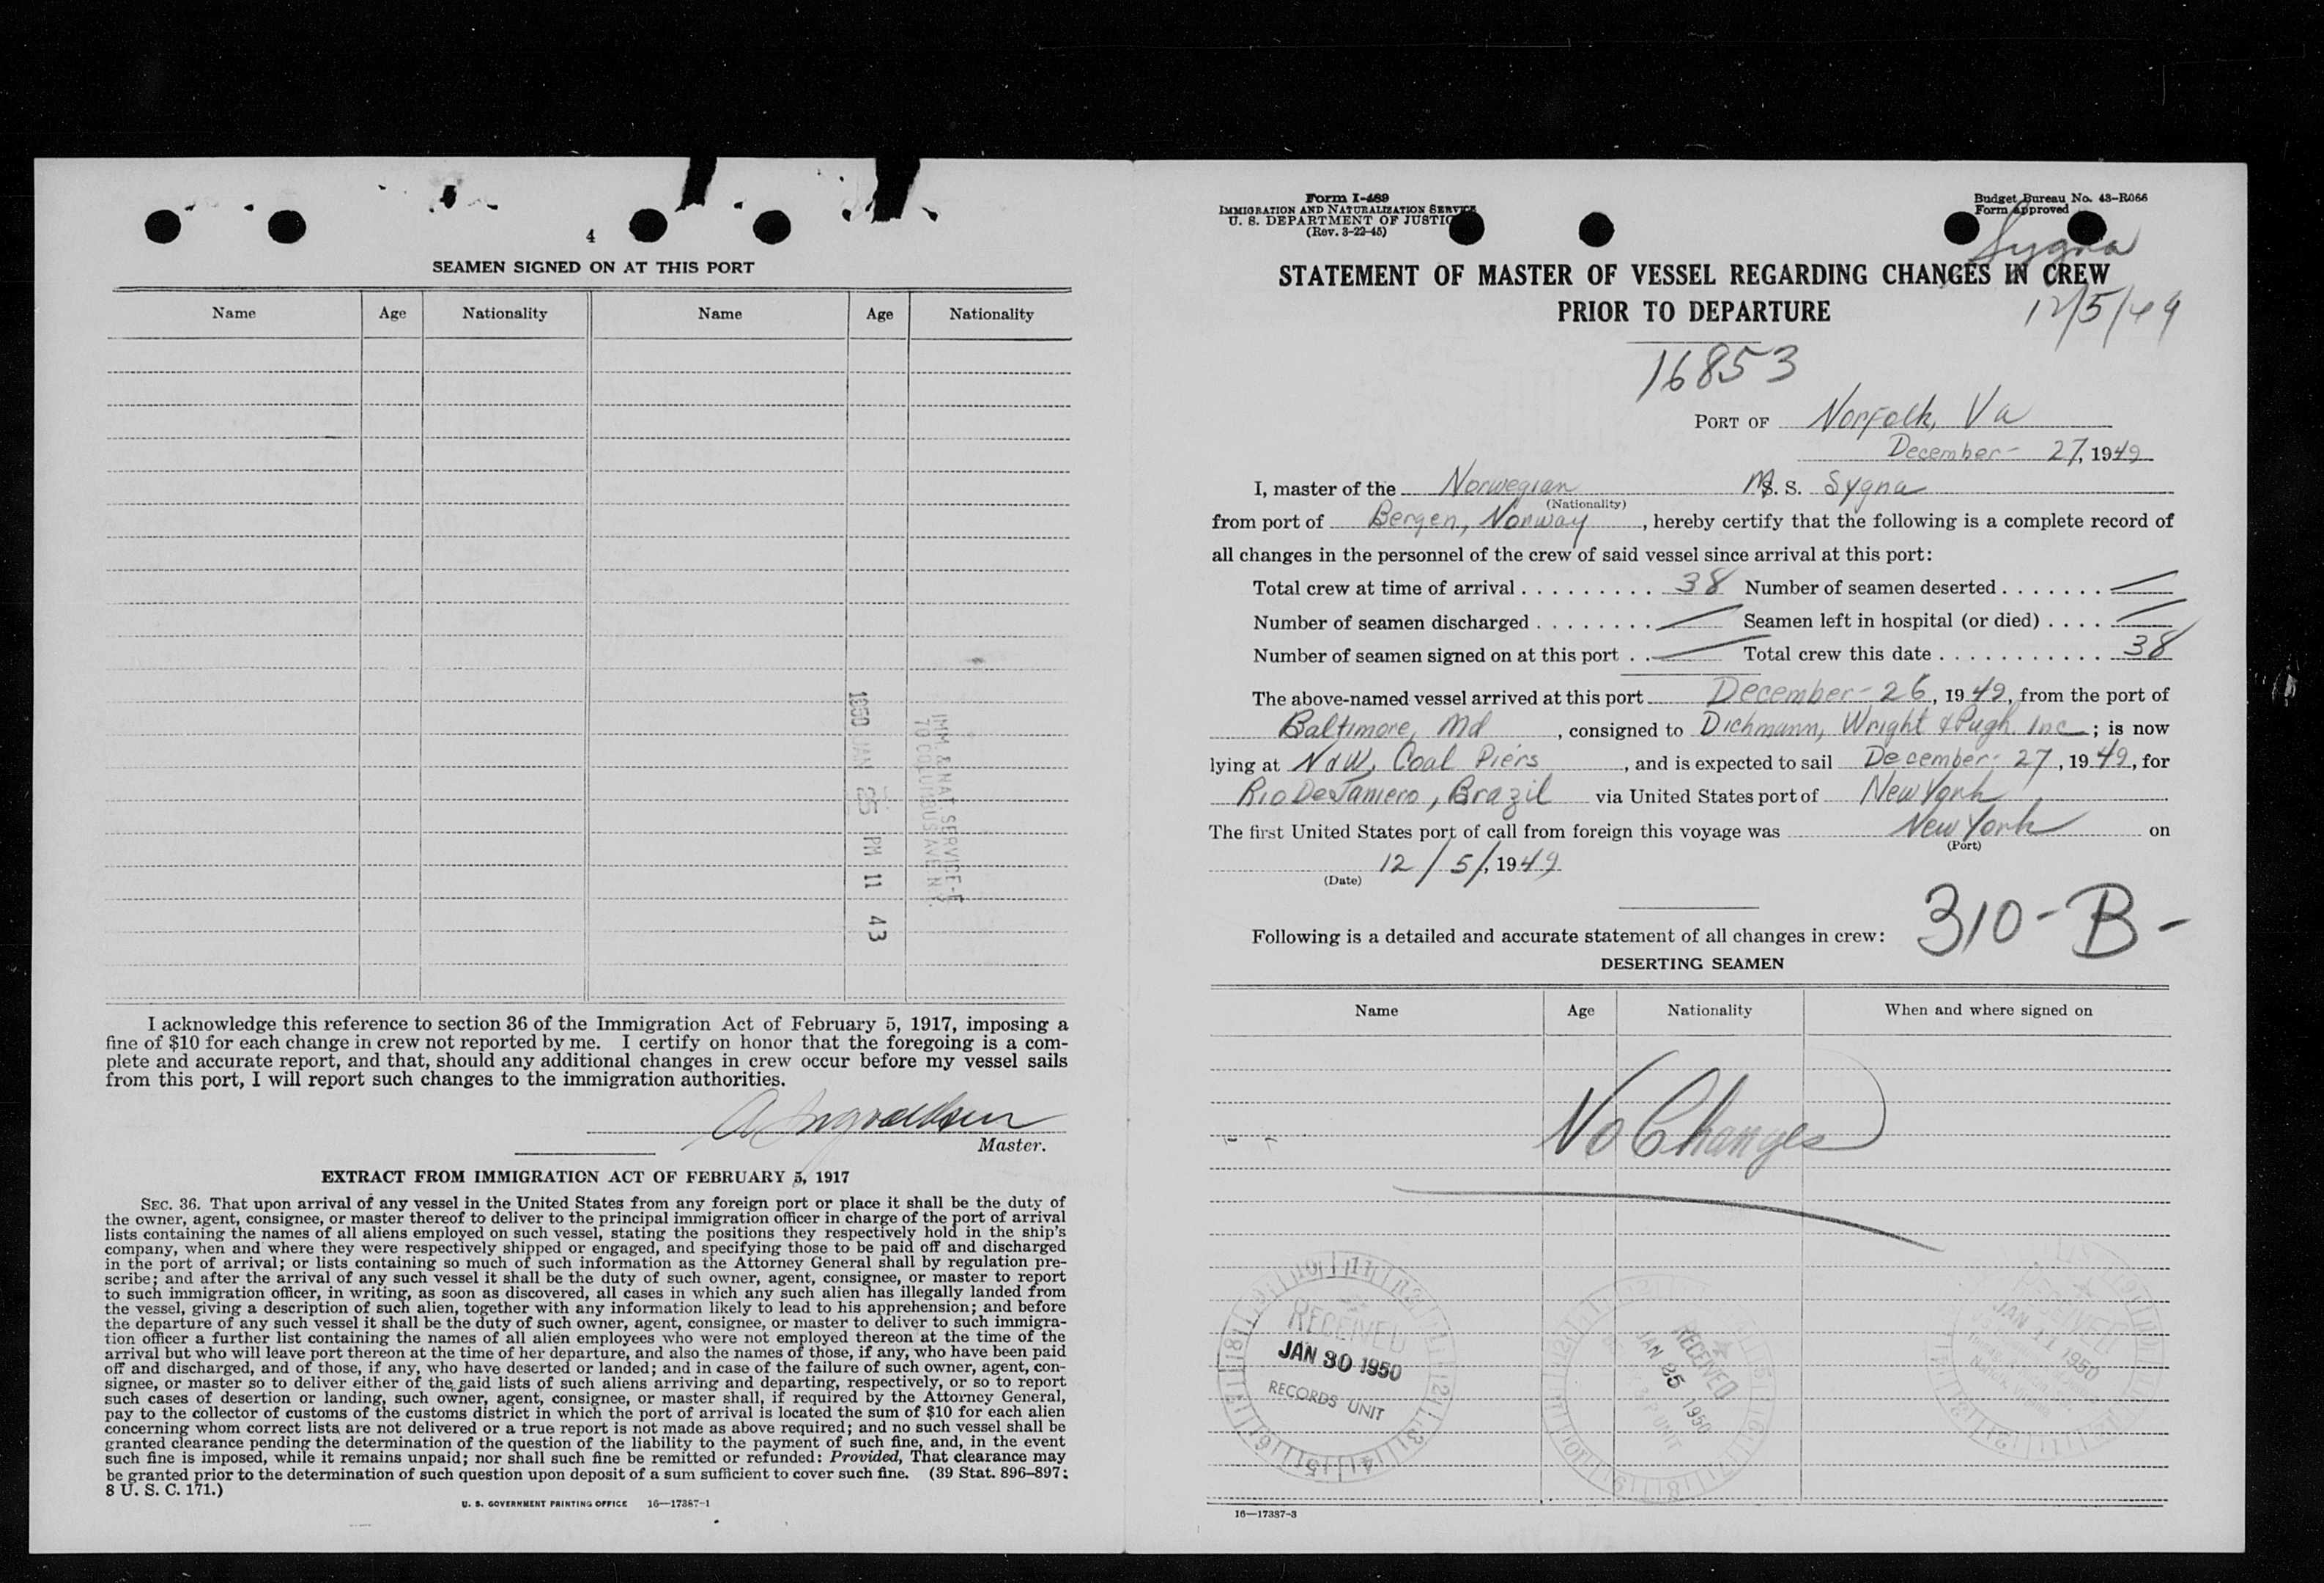 4
SEAMEN SIGNED ON AT THIS PORT
Name Age Nationality Name Age Nationality
1950 JAN 25 PM 11 43
IMM & NAT. SERVICE-
70 COLUMBUS AVE N
I acknowledge this reference to section 36 of the Immigration Act of February 5, 1917, imposing a
fine of $10 for each change in crew not reported by me. I certify on honor that the foregoing is a com-
plete and accurate report, and that, should any additional changes in crew occur before my vessel sails
from this port, I will report such changes to the immigration authorities.
Master.
EXTRACT FROM IMMIGRATION ACT OF FEBRUARY 5, 1917
SEC. 36. That upon arrival of any vessel in the United States from any foreign port or place it shall be the duty of
the owner, agent, consignee, or master thereof to deliver to the principal immigration officer in charge of the port of arrival
lists containing the names of all aliens employed on such vessel, stating the positions they respectively hold in the ship's
company, when and where they were respectively shipped or engaged, and specifying those to be paid off and discharged
in the port of arrival; or lists containing so much of such information as the Attorney General shall by regulation pre-
scribe; and after the arrival of any such vessel it shall be the duty of such owner, agent, consignee, or master to report
to such immigration officer, in writing, as soon as discovered, all cases in which any such alien has illegally landed from
the vessel, giving a description of such alien, together with any information likely to lead to his apprehension; and before
the departure of any such vessel it shall be the duty of such owner, agent, consignee, or master to deliver to such immigra-
tion officer a further list containing the names of all alien employees who were not employed thereon at the time of the
arrival but who will leave port thereon at the time of her departure, and also the names of those, if any, who have been paid
off and discharged, and of those, if any, who have deserted or landed; and in case of the failure of such owner, agent, con-
signee, or master so to deliver either of the said lists of such aliens arriving and departing, respectively, or so to report
such cases of desertion or landing, such owner, agent, consignee, or master shall, if required by the Attorney General,
pay to the collector of customs of the customs district in which the port of arrival is located the sum of $10 for each alien
concerning whom correct lists are not delivered or a true report is not made as above required; and no such vessel shall be
granted clearance pending the determination of the question of the liability to the payment of such fine, and, in the event
such fine is imposed, while it remains unpaid; nor shall such fine be remitted or refunded: Provided, That clearance may
be granted prior to the determination of such question upon deposit of a sum sufficient to cover such fine. (39 Stat. 896–897;
8 U. S. C. 171.)
U. S. GOVERNMENT PRINTING OFFICE 16—17387-1
Form I-489
IMMIGRATION AND NATURALIZATION SERVICE
U. S. DEPARTMENT OF JUSTICE
(Rev. 3-22-45)
Budget Bureau No. 43-R066
Form approved
Sygna
STATEMENT OF MASTER OF VESSEL REGARDING CHANGES IN CREW
PRIOR TO DEPARTURE
12/5/49
16853
PORT OF Norfolk, Va
December 27, 1949
I, master of the Norwegian M. S. Sygna
(Nationality)
from port of Bergen, Norway, hereby certify that the following is a complete record of
all changes in the personnel of the crew of said vessel since arrival at this port:
Total crew at time of arrival . . . . . . . . . 38 Number of seamen deserted . . . . . . . —
Number of seamen discharged . . . . . . . . — Seamen left in hospital (or died) . . . . —
Number of seamen signed on at this port . . — Total crew this date . . . . . . . . . . . . 38
The above-named vessel arrived at this port December 26, 1949, from the port of
Baltimore, Md, consigned to Dichmann, Wright & Pugh. Inc; is now
lying at N & W, Coal Piers, and is expected to sail December 27, 1949, for
Rio De Janiero, Brazil via United States port of New York
The first United States port of call from foreign this voyage was New York on
(Port)
12/5/, 1949
(Date)
310-B-
Following is a detailed and accurate statement of all changes in crew:
DESERTING SEAMEN
Name Age Nationality When and where signed on
No Changes
RECEIVED
JAN 30 1950
RECORDS UNIT
RECEIVED
JAN 25 1950
UNIT
RECEIVED
JAN 11 1950
16—17387-3